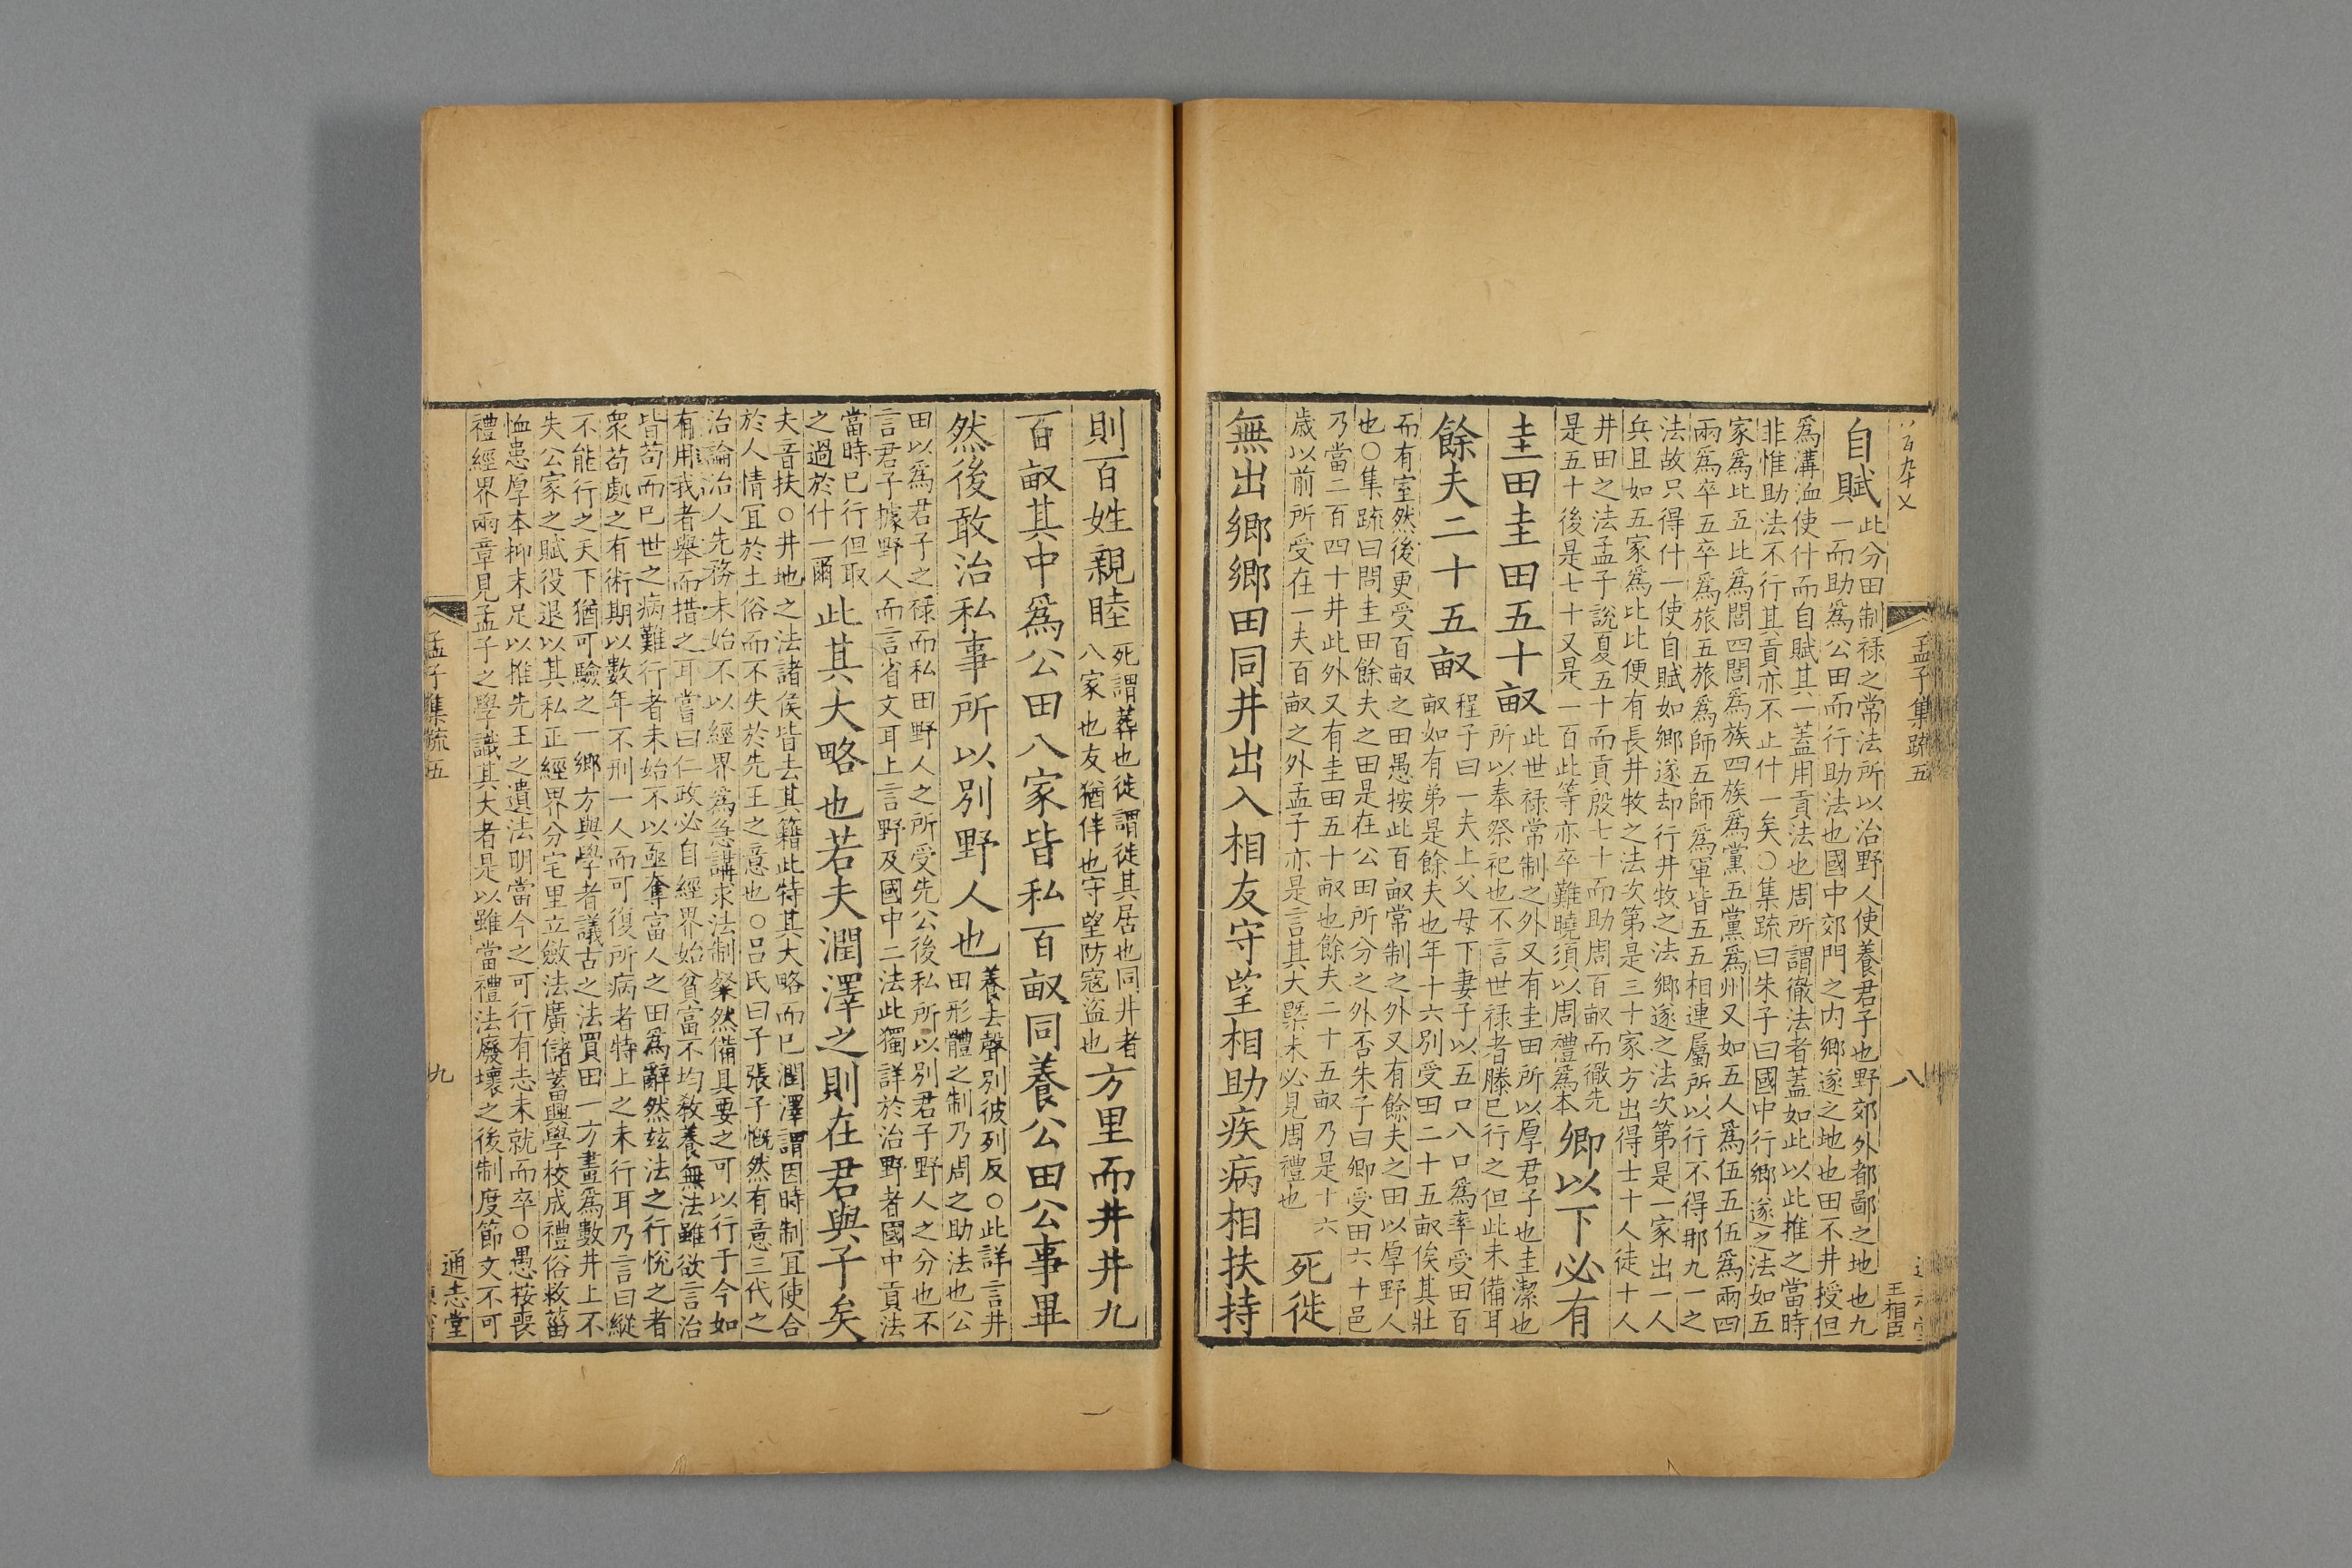 孟子集疏五
八
王相臣
自賦此分田制祿之常法所以治野人使養君子也野郊外都鄙之地也九
一而助爲公田而行助法也國中郊門之內鄉遂之地也田不井授但
爲溝洫使什而自賦其一蓋用貢法也周所謂徹法者蓋如此以此推之當時
非惟助法不行其貢亦不止什一矣○集疏曰朱子曰國中行鄉遂之法如五
家爲比五比爲閭四閭爲族四族爲黨五黨爲州又如五人爲伍五伍爲兩四
兩爲卒五卒爲旅五旅爲師五師爲軍皆五五相連屬所以行不得那九一之
法故只得什一使自賦如鄉遂却行井牧之法鄉遂之法次第是一家出一人
兵且如五家爲比比便有長井牧之法次第是三十家方出得士十人徒十人
井田之法孟子說夏五十而貢殷七十而助周百畝而徹先
是五十後是七十又是一百此等亦卒難曉須以周禮爲本卿以下必有
圭田圭田五十畝此世祿常制之外又有圭田所以厚君子也圭潔也
所以奉祭祀也不言世祿者滕已行之但此未備耳
餘夫二十五畝程子曰一夫上父母下妻子以五口八口爲率受田百
畝如有弟是餘夫也年十六別受田二十五畝俟其壯
而有室然後更受百畝之田愚按此百畝常制之外又有餘夫之田以厚野人
也○集疏曰問圭田餘夫之田是在公田所分之外否朱子曰卿受田六十邑
乃當二百四十井此外又有圭田五十畝也餘夫二十五畝乃是十六
歲以前所受在一夫百畝之外孟子亦是言其大槩未必見周禮也死徙
無出鄉鄉田同井出入相友守望相助疾病相扶持
則百姓親睦死謂葬也徙謂徙其居也同井者
八家也友猶伴也守望防寇盜也方里而井井九
百畝其中爲公田八家皆私百畝同養公田公事畢
然後敢治私事所以別野人也養去聲別彼列反○此詳言井
田形體之制乃周之助法也公
田以爲君子之祿而私田野人之所受先公後私所以別君子野人之分也不
言君子據野人而言省文耳上言野及國中二法此獨詳於治野者國中貢法
當時已行但取
之過於什一爾此其大略也若夫潤澤之則在君與子矣
夫音扶○井地之法諸侯皆去其籍此特其大略而已潤澤謂因時制宜使合
於人情宜於土俗而不失於先王之意也○呂氏曰子張子慨然有意三代之
治論治人先務未始不以經界爲急講求法制粲然備具要之可以行于今如
有用我者舉而措之耳嘗曰仁政必自經界始貧富不均敎養無法雖欲言治
皆苟而已世之病難行者未始不以亟奪富人之田爲辭然玆法之行悅之者
衆苟處之有術期以數年不刑一人而可復所病者特上之未行耳乃言曰縱
不能行之天下猶可驗之一鄉方與學者議古之法買田一方畫爲數井上不
失公家之賦役退以其私正經界分宅里立斂法廣儲蓄興學校成禮俗救菑
恤患厚本抑末足以推先王之遺法明當今之可行有志未就而卒○愚按喪
禮經界兩章見孟子之學識其大者是以雖當禮法廢壞之後制度節文不可
孟子集疏五
九
通志堂